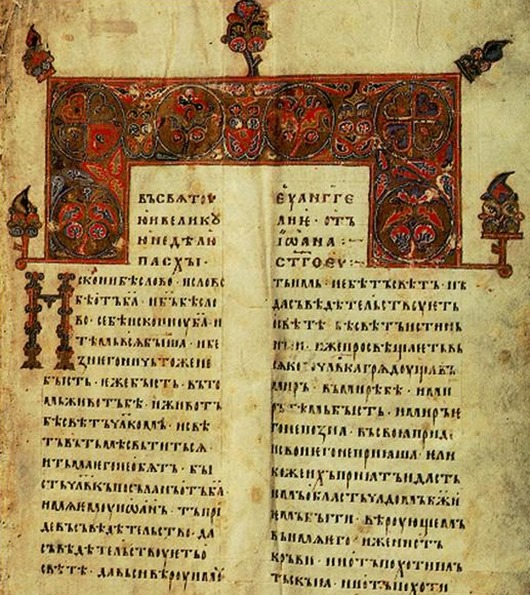 ВЪСВѦТОУ
ЮИВЕЛИКОУ
ЮНЕДѢЛЮ
ПАСХЫ·
Искониб̑ѣслово · ислово
бѣотъб҃а · ибъ̑бѣсло
во · себѣисконоуб҃а · и
тѣмьвсѧбыша · ибе
негоничьтожене
бысть · ежебысть · въто
мьживотъбѣ · иживотъ
бѣсвѣтъчл҃комъ · исвѣ
тъвътьмѣсвьтитьсѧ ·
итьмаѥгонеобѧтъ · бы
стьчл҃вкъпосъланъотъб҃а
имѧѥмоуиоанъ · тъпри
девъсъвѣдѣтельство · да
съвѣдѣтельствоуѥтьо
свѣтѣ · давьсивѣроуимоуть
ЕУАНГГЕ
ЛИѤ · ОТЪ
ІѠАНА :~
СТГОЕУ :~
тьимь · небѣтъсвѣтъ · нъ
дасъвѣдѣтельствоуѥть
освѣтѣ · бѣсвѣтъистинь
ныи · ижепросвѣщаѥтьвь
сѧкогочл҃вкагрѧдоущавъ
миръ · вьмирѣбѣ · имир
ъ тѣмьбысть · имиръѥ
гонепозна · въсвоѧприд
исвоиѥгонеприѧша · ѥли
кожеихъприѧтъидастъ
имъобластьчѧдомъб҃жи
ѥмъбыти · вѣроующемъ
въимѧѥго · иженистъ
кръви · ниотъпохотипл
тьскыѧ · ниотъпохоти